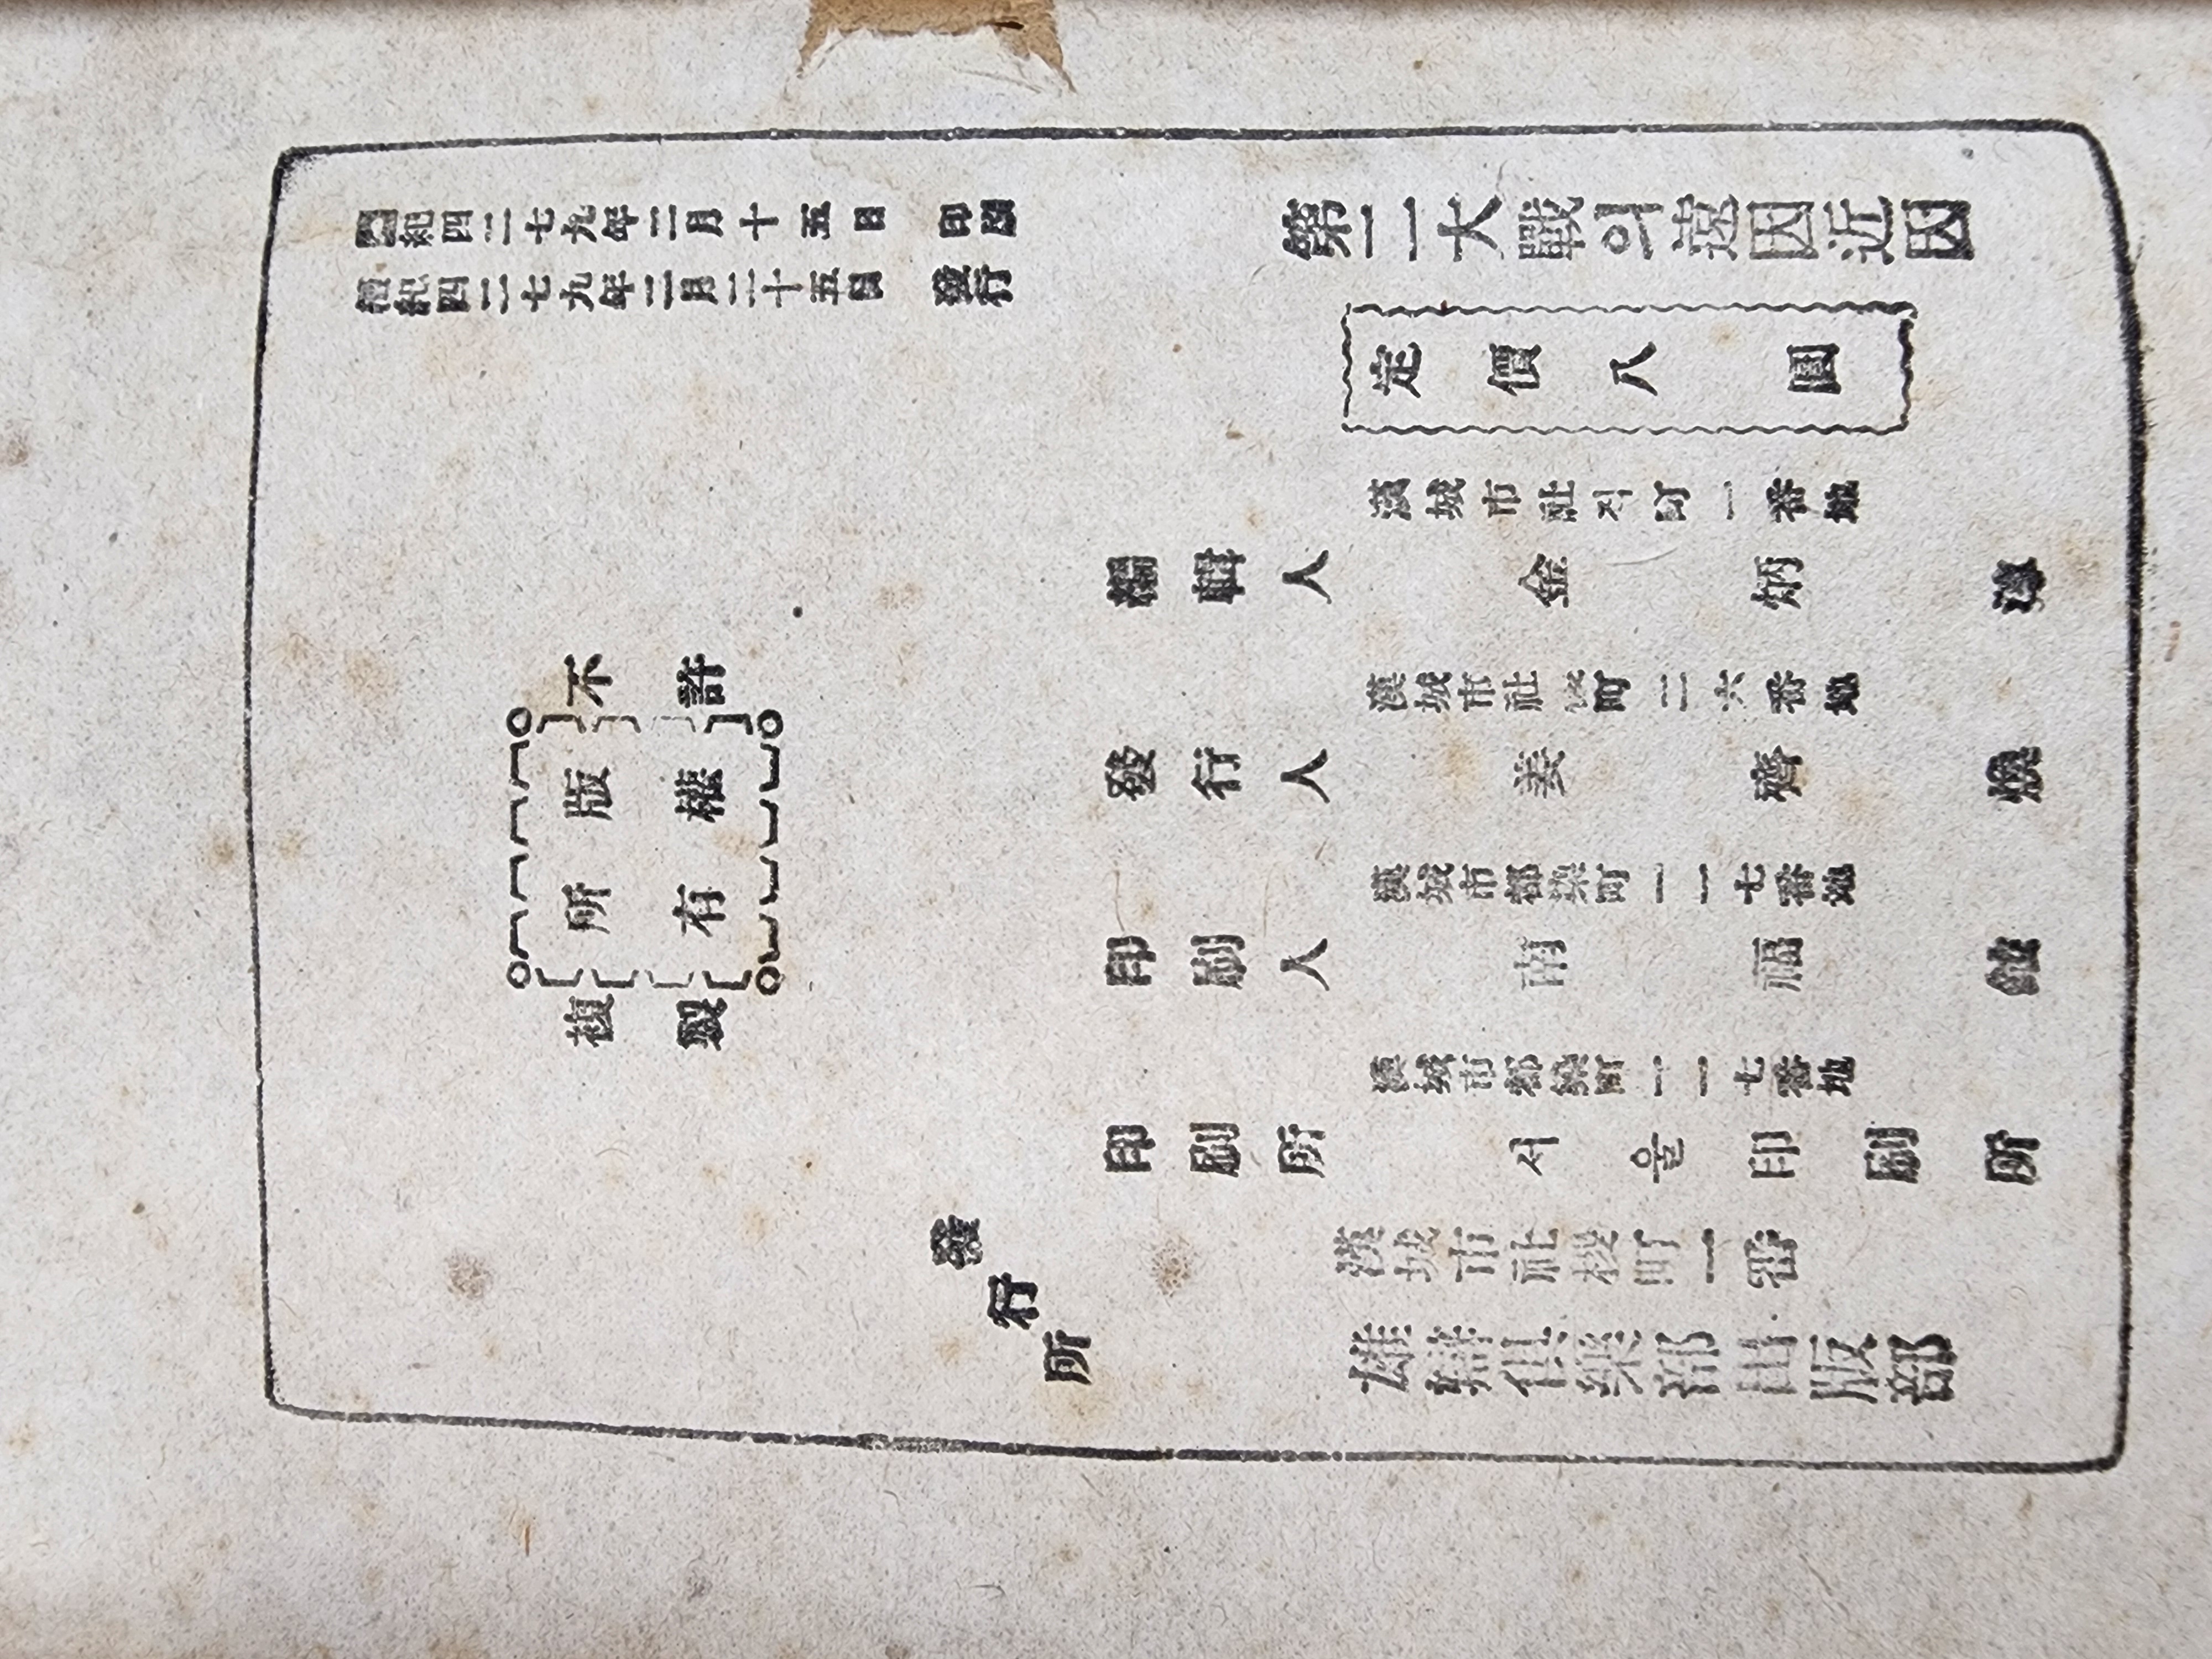 檀紀四二七九年二月十五日 印刷
檀紀四二七九年二月二十五日 發行
第二大戰의遠因近因
定價八圓
不許
版權
所有
複製
漢城市社직町一番地
編輯人 金炳
漢城市社稷町二六番地
發行人 姜濟煥
漢城市都染町一一七番地
印刷人 南福
漢城市都染町一一七番地
印刷所 서울印刷所
發行所
漢城市社稷町一番
雄辯俱樂部出版部